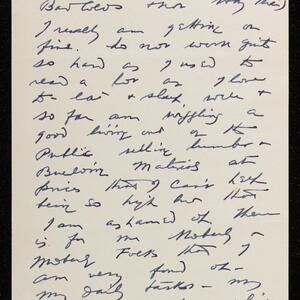 Bad Colds
I really am getting on
fine. Do not work quite
so hard as I used to
read a lot as I love
to - eat & sleep well &
so far am wiggling a
good living out of the
Public selling lumber &
Building Material at
prices that I can't help
being so high but that
I am ashamed of. There
is for me Nobody &
Nobody Exists that I
am very fond of -
my daily tasks - my